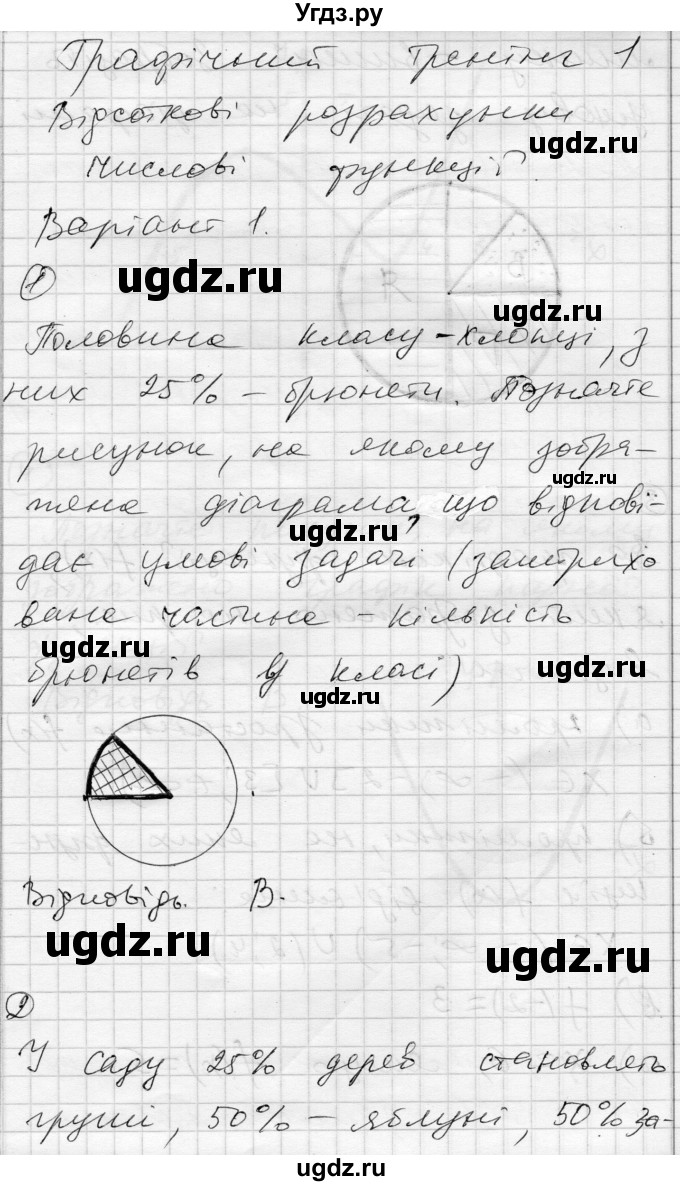 Угдз.ру
Графічний тренінг 1
Відсоткові розрахунки
ugdz.ru
Числові функції
Варіант 1.
1
ugdz.ru
ugdz.ru
Половина класу - хлопці, з
них 25% - брюнети. Позначте
рисунок, на якому зобра-
ugdz.ru
жена діаграма, що відпові-
ugdz.ru
дає умові задачі (заштрихо
вана частина - кількість
ugdz.ru
ugdz.ru
брюнетів в класі)
ugdz.ru
Відповідь. В.
ugdz.ru
ugdz.ru
2
У саду 25% дерев становлять
груші, 50% - яблуні, 50% за-
ugdz.ru